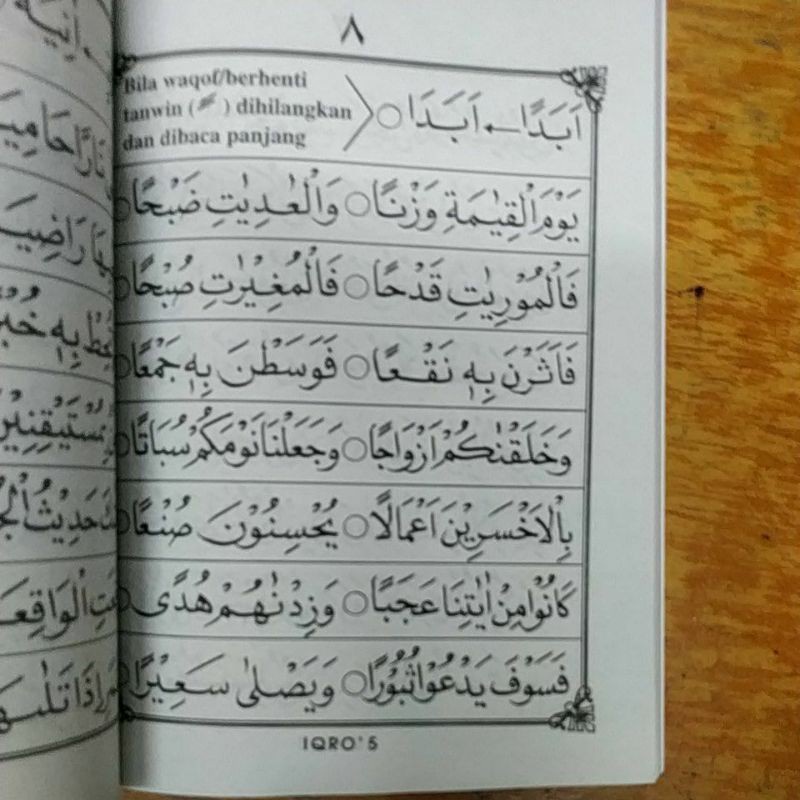 ٨
اَبَدًا ← اَبَدَا ○
Bila waqof/berhenti
tanwin ( ً ) dihilangkan
dan dibaca panjang
يَوْمَ الْقِيٰمَةِ وَزْنًا ○ وَالْعٰدِيٰتِ ضَبْحًا ○
فَالْمُوْرِيٰتِ قَدْحًا ○ فَالْمُغِيْرٰتِ صُبْحًا ○
فَاَثَرْنَ بِهٖ نَقْعًا ○ فَوَسَطْنَ بِهٖ جَمْعًا ○
وَخَلَقْنٰكُمْ اَزْوَاجًا ○ وَجَعَلْنَا نَوْمَكُمْ سُبَاتًا ○
بِالْاَخْسَرِيْنَ اَعْمَالًا ○ يُحْسِنُوْنَ صُنْعًا ○
كَانُوْا مِنْ اٰيٰتِنَا عَجَبًا ○ وَزِدْنٰهُمْ هُدًى ○
فَسَوْفَ يَدْعُوْا ثُبُوْرًا ○ وَيَصْلٰى سَعِيْرًا ○
IQRO' 5